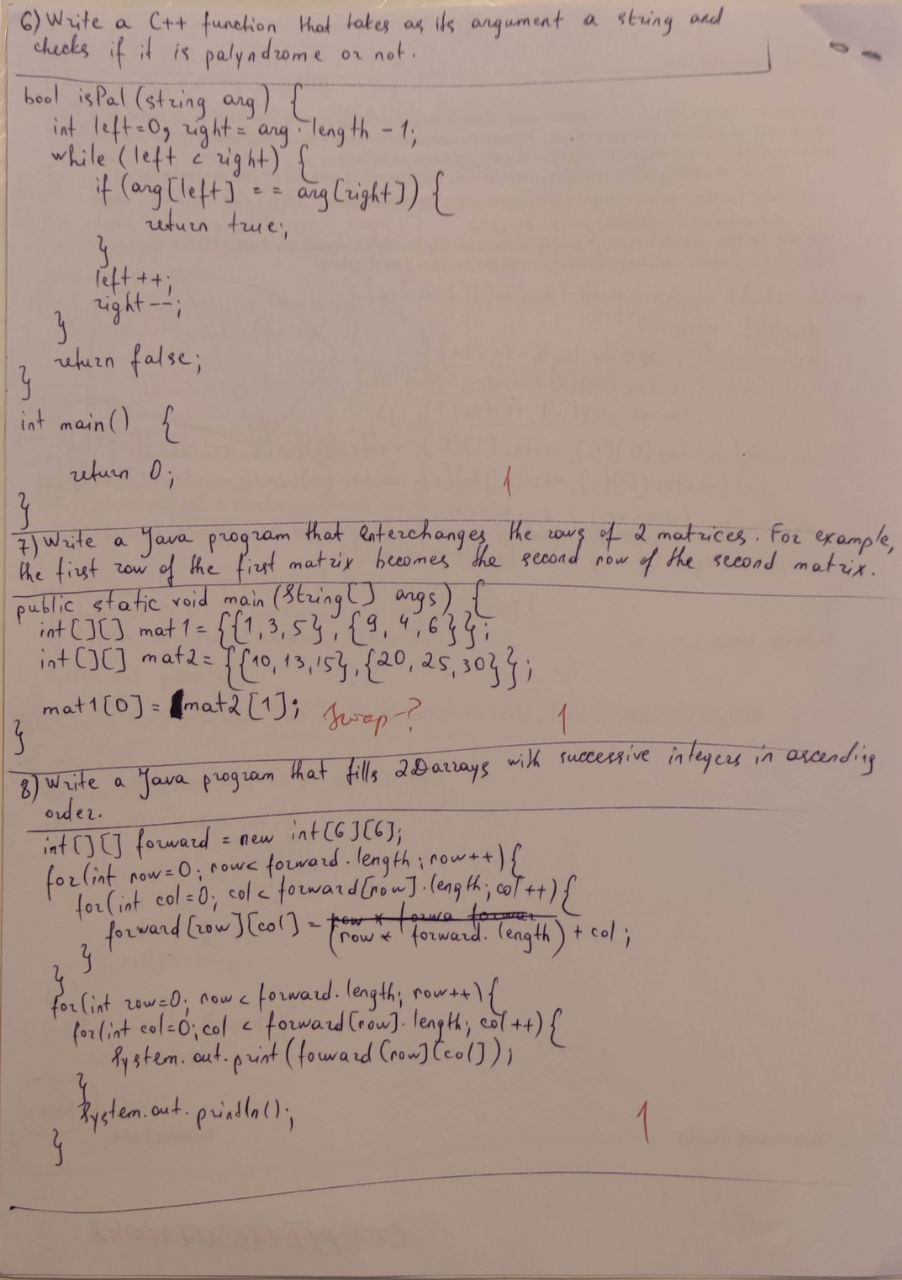 6) Write a C++ function that takes as its argument a string and
checks if it is palyndrome or not.
bool isPal (string arg) {
int left=0, right = arg.length - 1;
while (left < right) {
if (arg[left] == arg[right]) {
return true;
}
left ++;
right --;
}
return false;
}
int main() {
return 0;
}
1
7) Write a Java program that interchanges the rows of 2 matrices. For example,
the first row of the first matrix becomes the second row of the second matrix.
public static void main (String[] args) {
int[][] mat1 = {{1, 3, 5}, {9, 4, 6}};
int[][] mat2 = {{10, 13, 15}, {20, 25, 30}};
mat1[0] = mat2[1]; Swap-? 1
}
8) Write a Java program that fills 2D arrays with successive integers in ascending
order.
int[][] forward = new int[6][6];
for(int row=0; row< forward.length; row++){
for(int col=0; col< forward[row].length; col++){
forward[row][col] = (row * forward.length) + col;
}
}
for(int row=0; row < forward.length; row++){
for(int col=0; col < forward[row].length; col++){
System.out.print(forward[row][col]);
}
System.out.println();
1
}